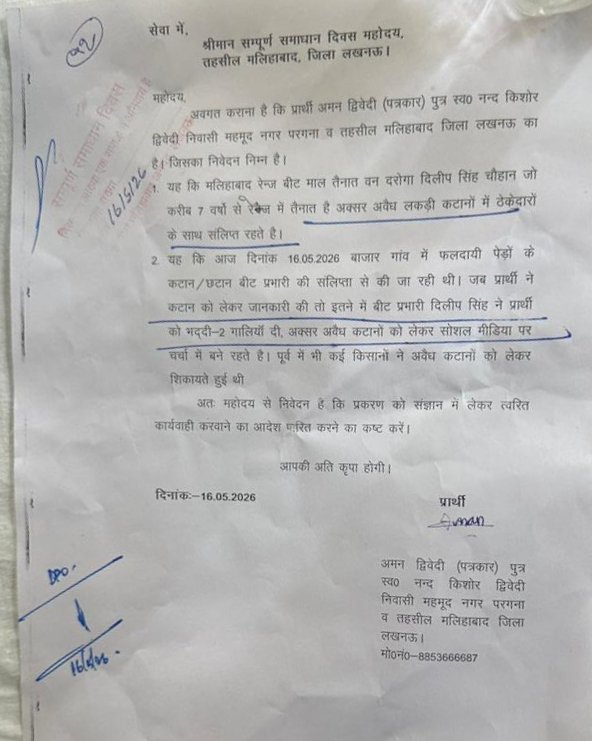 सेवा में,
श्रीमान सम्पूर्ण समाधान दिवस महोदय,
तहसील मलिहाबाद, जिला लखनऊ।
महोदय,
अवगत कराना है कि प्रार्थी अमन द्विवेदी (पत्रकार) पुत्र स्व0 नन्द किशोर
द्विवेदी निवासी महमूद नगर परगना व तहसील मलिहाबाद जिला लखनऊ का
है। जिसका निवेदन निम्न है।
सम्पूर्ण समाधान दिवस
16/5/26
1. यह कि मलिहाबाद रेन्ज बीट माल तैनात वन दरोगा दिलीप सिंह चौहान जो
करीब 7 वर्षो से रेन्ज में तैनात है अक्सर अवैध लकड़ी कटानों में ठेकेदारों
के साथ संलिप्त रहते है।
2. यह कि आज दिनांक 16.05.2026 बाजार गांव में फलदायी पेड़ों के
कटान/छटान बीट प्रभारी की संलिप्ता से की जा रही थी। जब प्रार्थी ने
कटान को लेकर जानकारी की तो इतने में बीट प्रभारी दिलीप सिंह ने प्रार्थी
को भद्दी-2 गालियाँ दी, अक्सर अवैध कटानों को लेकर सोशल मीडिया पर
चर्चा में बने रहते है। पूर्व में भी कई किसानों ने अवैध कटानों को लेकर
शिकायते हुई थी
अतः महोदय से निवेदन है कि प्रकरण को संज्ञान में लेकर त्वरित
कार्यवाही करवाने का आदेश पारित करने का कष्ट करें।
आपकी अति कृपा होगी।
दिनांकः-16.05.2026
प्रार्थी
Aman
अमन द्विवेदी (पत्रकार) पुत्र
स्व0 नन्द किशोर द्विवेदी
निवासी महमूद नगर परगना
व तहसील मलिहाबाद जिला
लखनऊ।
मो0नं0-8853666687